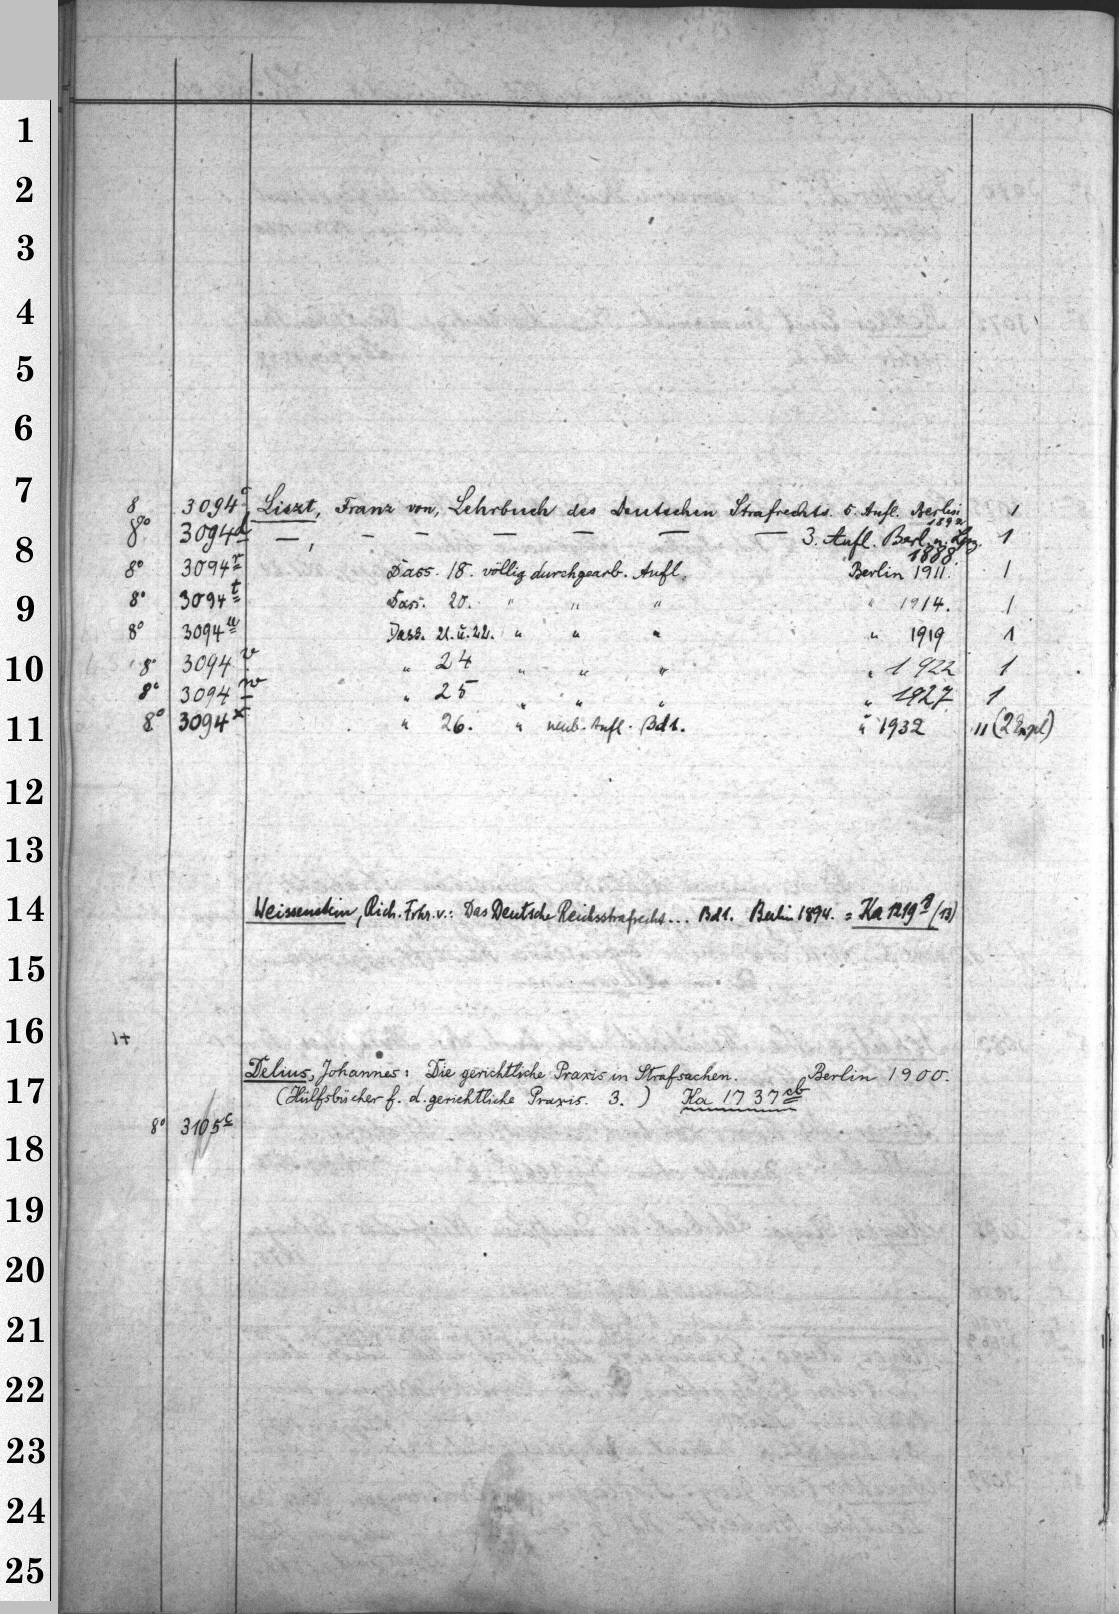 1
2
3
4
5
6
7
8 3094c Liszt, Franz von, Lehrbuch des Deutschen Strafrechts. 5. Aufl. Berlin 1892 1
8
8° 3094d —, — — — — — — 3. Aufl. Berl. u. Lpz. 1888. 1
8° 3094r Dass. 18. völlig durchgearb. Aufl. Berlin 1911. 1
9
8° 3094t Dass. 20. " " " " 1914. 1
8° 3094u Dass. 21. u. 22. " " " " 1919 1
10
8° 3094v " 24 " " " " 1922 1
8° 3094w " 25 " " " " 1927 1
11
8° 3094x " 26. " neub. Aufl. Bd 1. " 1932 11 (2 Expl)
12
13
14
Weissenstein, Rich. Frhr. v.: Das Deutsche Reichsstrafrecht... Bd 1. Berlin 1894. = Ka 1219 /(13)
15
16
17
Delius, Johannes: Die gerichtliche Praxis in Strafsachen. Berlin 1900.
(Hülfsbücher f. d. gerichtliche Praxis. 3.) Ka 1737cb
8° 3105c
18
19
20
21
22
23
24
25